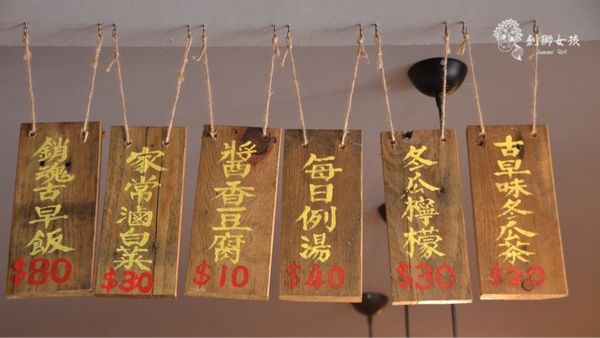 銷魂古早飯
$80
家常滷白菜
$30
醬香豆腐
$10
每日例湯
$40
冬瓜檸檬
$30
古早味冬瓜茶
$20
劍獅女孩
Jummi Girl